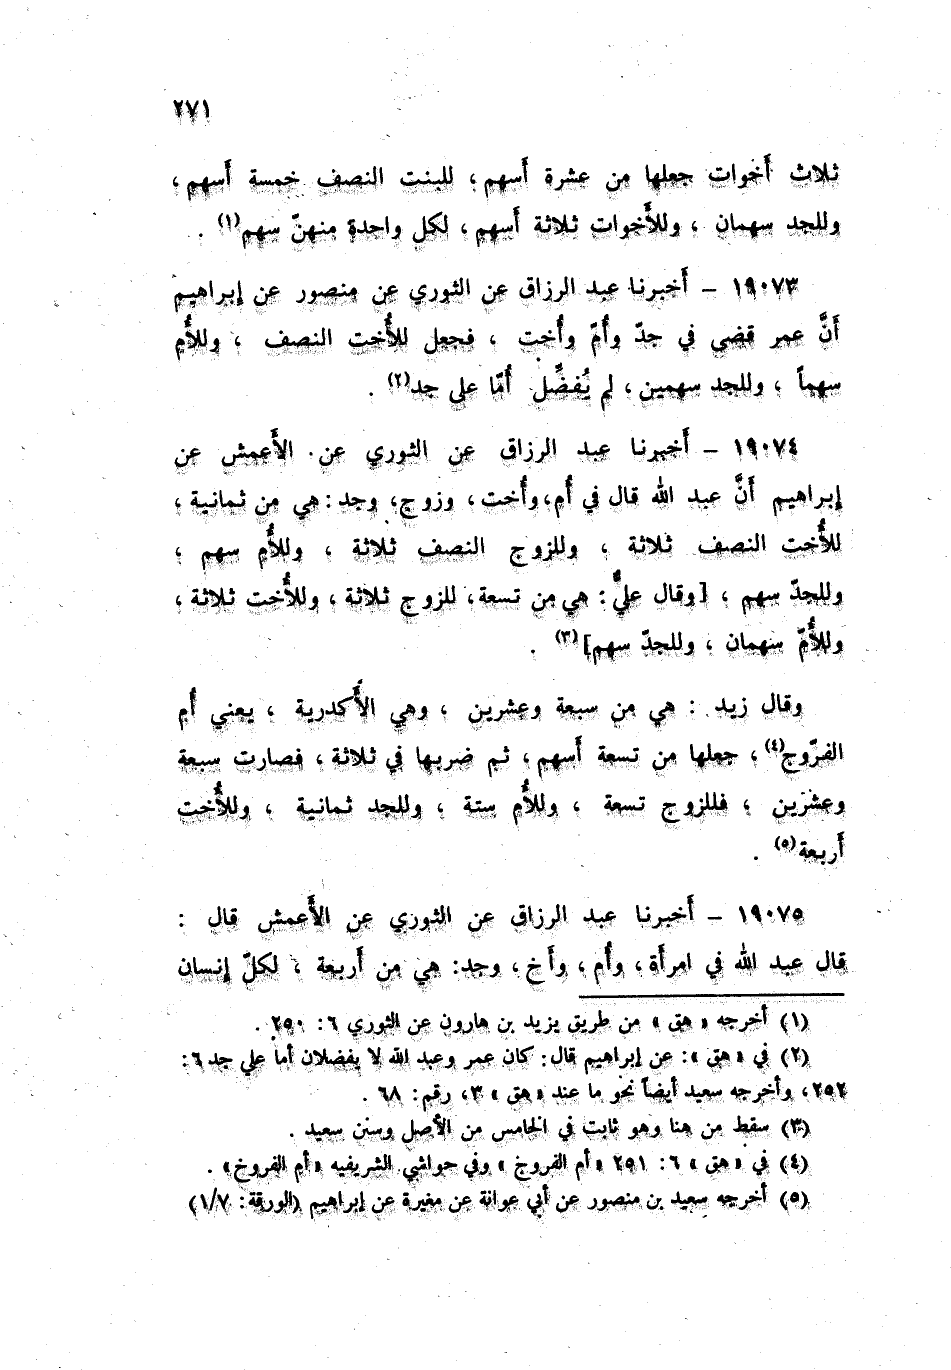 ٢٧١
ثلاث أخوات جعلها من عشرة أسهم ، للبنت النصف خمسة أسهم ،
وللجد سهمان ، وللأخوات ثلاثة أسهم ، لكل واحدة منهنّ سهم(١) .
١٩٠٧٣ – أخبرنا عبد الرزاق عن الثوري عن منصور عن إبراهيم
أنَّ عمر قضى في جدّ وأُمّ وأُخت ، فجعل للأُخت النصف ، وللأُم
سهماً ، وللجد سهمين ، لم يُفضِّل أُمّا على جد(٢) .
١٩٠٧٤ – أخبرنا عبد الرزاق عن الثوري عن الأَعمش عن
إبراهيم أنَّ عبد الله قال في أُم، وأُخت ، وزوج، وجد : هي من ثمانية ،
للأُخت النصف ثلاثة ، وللزوج النصف ثلاثة ، وللأُم سهم ،
وللجدّ سهم ، [وقال عليٌّ : هي من تسعة، للزوج ثلاثة ، وللأُخت ثلاثة ،
وللأُمّ سهمان ، وللجدّ سهم](٣) .
وقال زيد : هي من سبعة وعشرين ، وهي الأَكدرية ، يعني أم
الفرّوج(٤) ، جعلها من تسعة أسهم ، ثم ضربها في ثلاثة ، فصارت سبعة
وعشرين ، فللزوج تسعة ، وللأُم ستة ، وللجد ثمانية ، وللأُخت
أربعة(٥) .
١٩٠٧٥ – أخبرنا عبد الرزاق عن الثوري عن الأَعمش قال :
قال عبد الله في امرأة ، وأُم ، وأَخ ، وجد: هي من أربعة ، لكلّ إنسان
(١) أخرجه « هق » من طريق يزيد بن هارون عن الثوري ٦: ٢٥٠ .
(٢) في « هق »: عن إبراهيم قال: كان عمر وعبد الله لا يفضلان أما على جد ٦:
٢٥٢، وأخرجه سعيد أيضاً نحو ما عند « هق » ٣، رقم: ٦٨ .
(٣) سقط من هنا وهو ثابت في الخامس من الأصل وسنن سعيد .
(٤) في « هق » ٦: ٢٥١ « أم الفروخ » وفي حواشي الشريفيه « أم الفروخ» .
(٥) أخرجه سعيد بن منصور عن أبي عوانة عن مغيرة عن إبراهيم (الورقة: ١/٧)